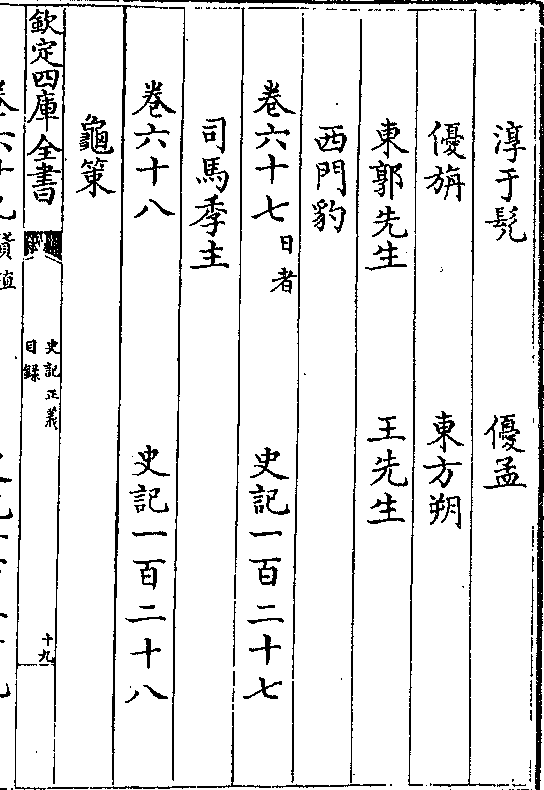 淳于髠 優孟
優旃 東方朔
東郭先生 王先生
西門豹
卷六十七日者 史記一百二十七
司馬季主
卷六十八 史記一百二十八
龜策
欽定四庫全書 史記正義 目錄 十九